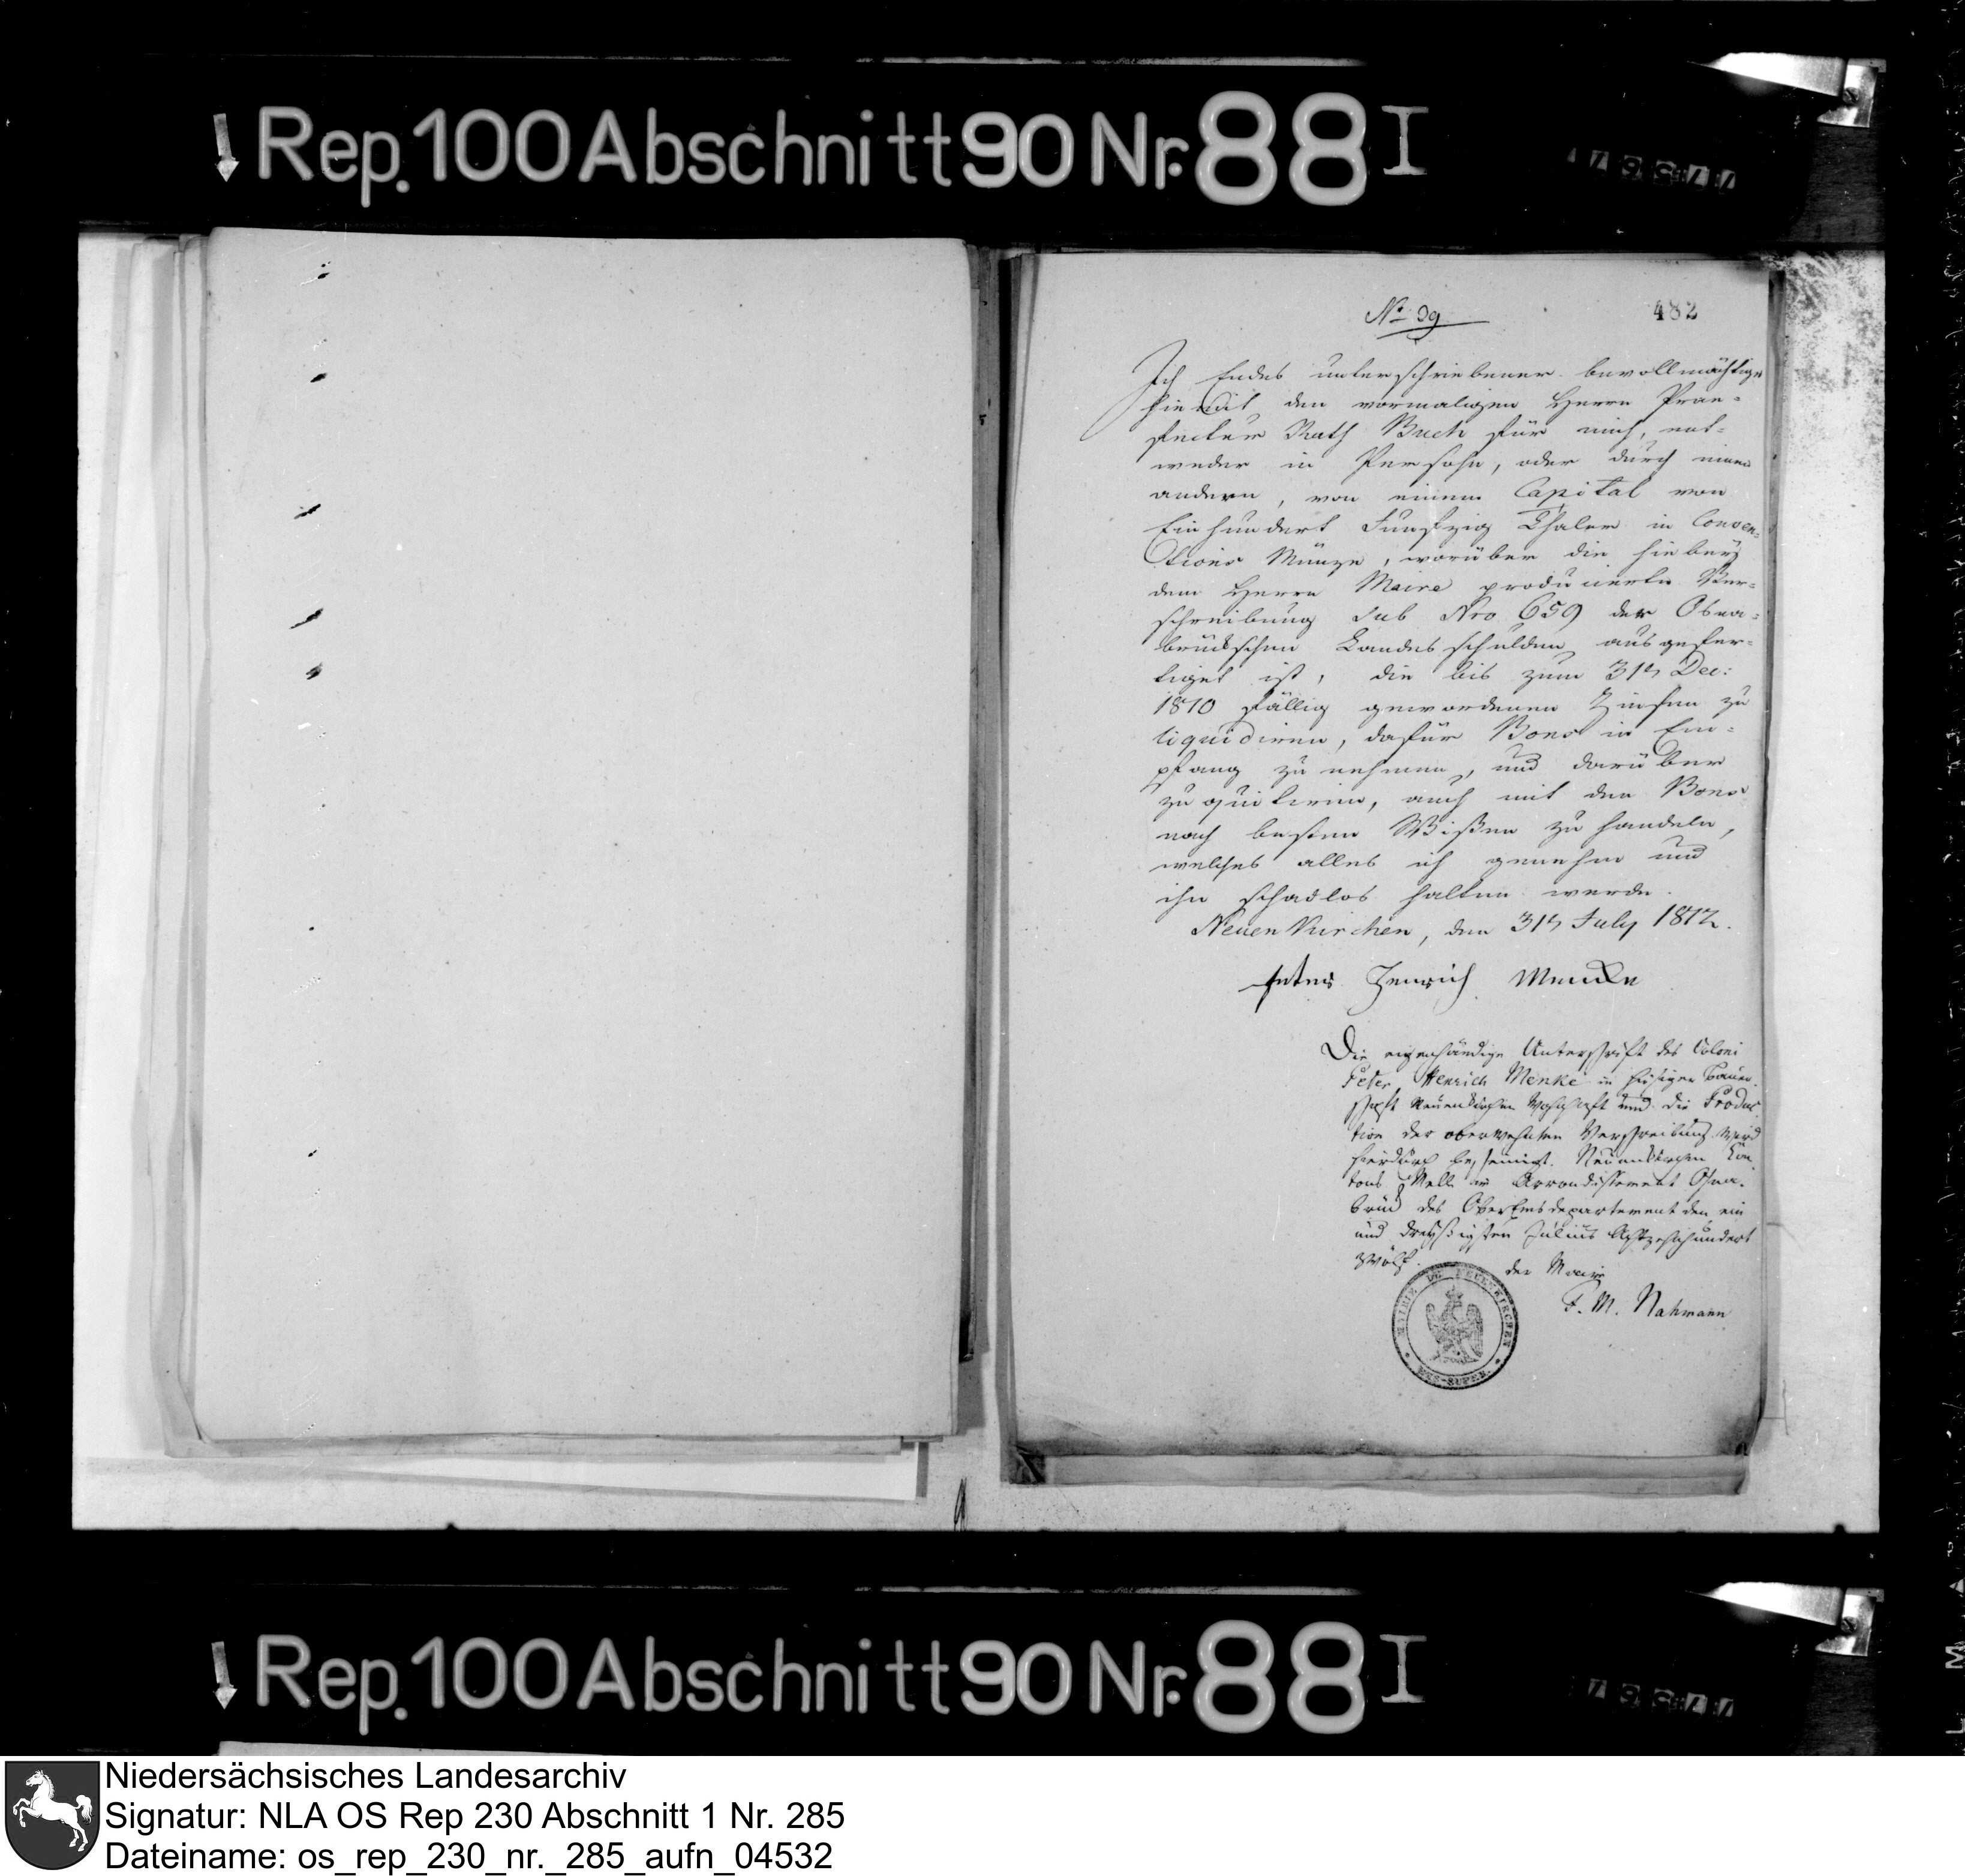 Rep. 100 Abschnitt 90 Nr. 88 I
No 39
482
Ich Endes unterschriebener bevollmächtige
hiemit den vormaligen Herrn Prae-
fectur Rath Buch für mich, ent-
weder in Persohn, oder durch einen
andern, von einem Capital von
Einhundert Funfzig Thaler in Conven-
tions Münze, worüber die hiebey
dem Herrn Maire producierte Ver-
schreibung sub Nro 659 der Osna-
brückschen Landesschulden ausgefer-
tiget ist, die bis zum 31ten Dec:
1810 fällig gewordenen Zinsen zu
liquidiren, dafür Bons in Em-
pfang zu nehmen, und darüber
zu quitiren, auch mit den Bons
nach besten Wißen zu handeln,
welches alles ich genehm und
ihn schadlos halten werde.
Neuenkirchen, den 31ten July 1812.
Peter Henrich Menke
Die eigenhändige Unterschrift des Coloni
Peter Henrich Menke in hiesiger Bauer-
schaft Neuenkirchen wohnhaft und die Produc-
tion der oberwehnten Verschreibung wird
hierdurch bescheinigt. Neuenkirchen Can-
tons Melle im Arrondissement Osna-
brück des OberEmsdepartement den ein
und dreyßigsten Julius Achtzehnhundert
zwölf.
der Maire
F. M. Nahmann
MAIRIE DE NEUENKIRCHEN
EMS-SUPER.
Rep. 100 Abschnitt 90 Nr. 88 I
Niedersächsisches Landesarchiv
Signatur: NLA OS Rep 230 Abschnitt 1 Nr. 285
Dateiname: os_rep_230_nr._285_aufn_04532